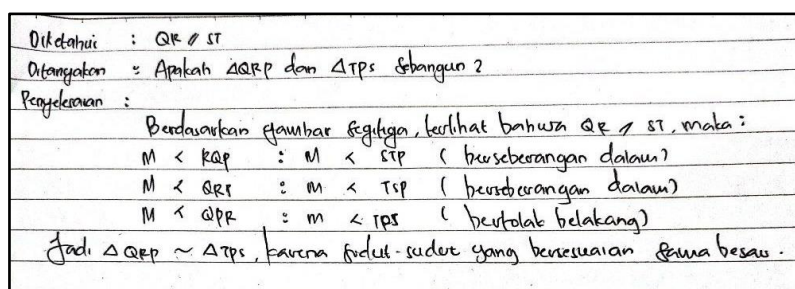 Diketahui : QR // ST
Ditanyakan : Apakah ΔQRP dan ΔTPS sebangun ?
Penyelesaian :
Berdasarkan gambar segitiga, terlihat bahwa QR // ST, maka :
M < RQP : M < STP ( berseberangan dalam)
M < QRS : M < TSP ( berseberangan dalam)
M < QPR : m < TPS ( bertolak belakang)
Jadi Δ QRP ~ ΔTPS, karena sudut-sudut yang bersesuaian sama besar.